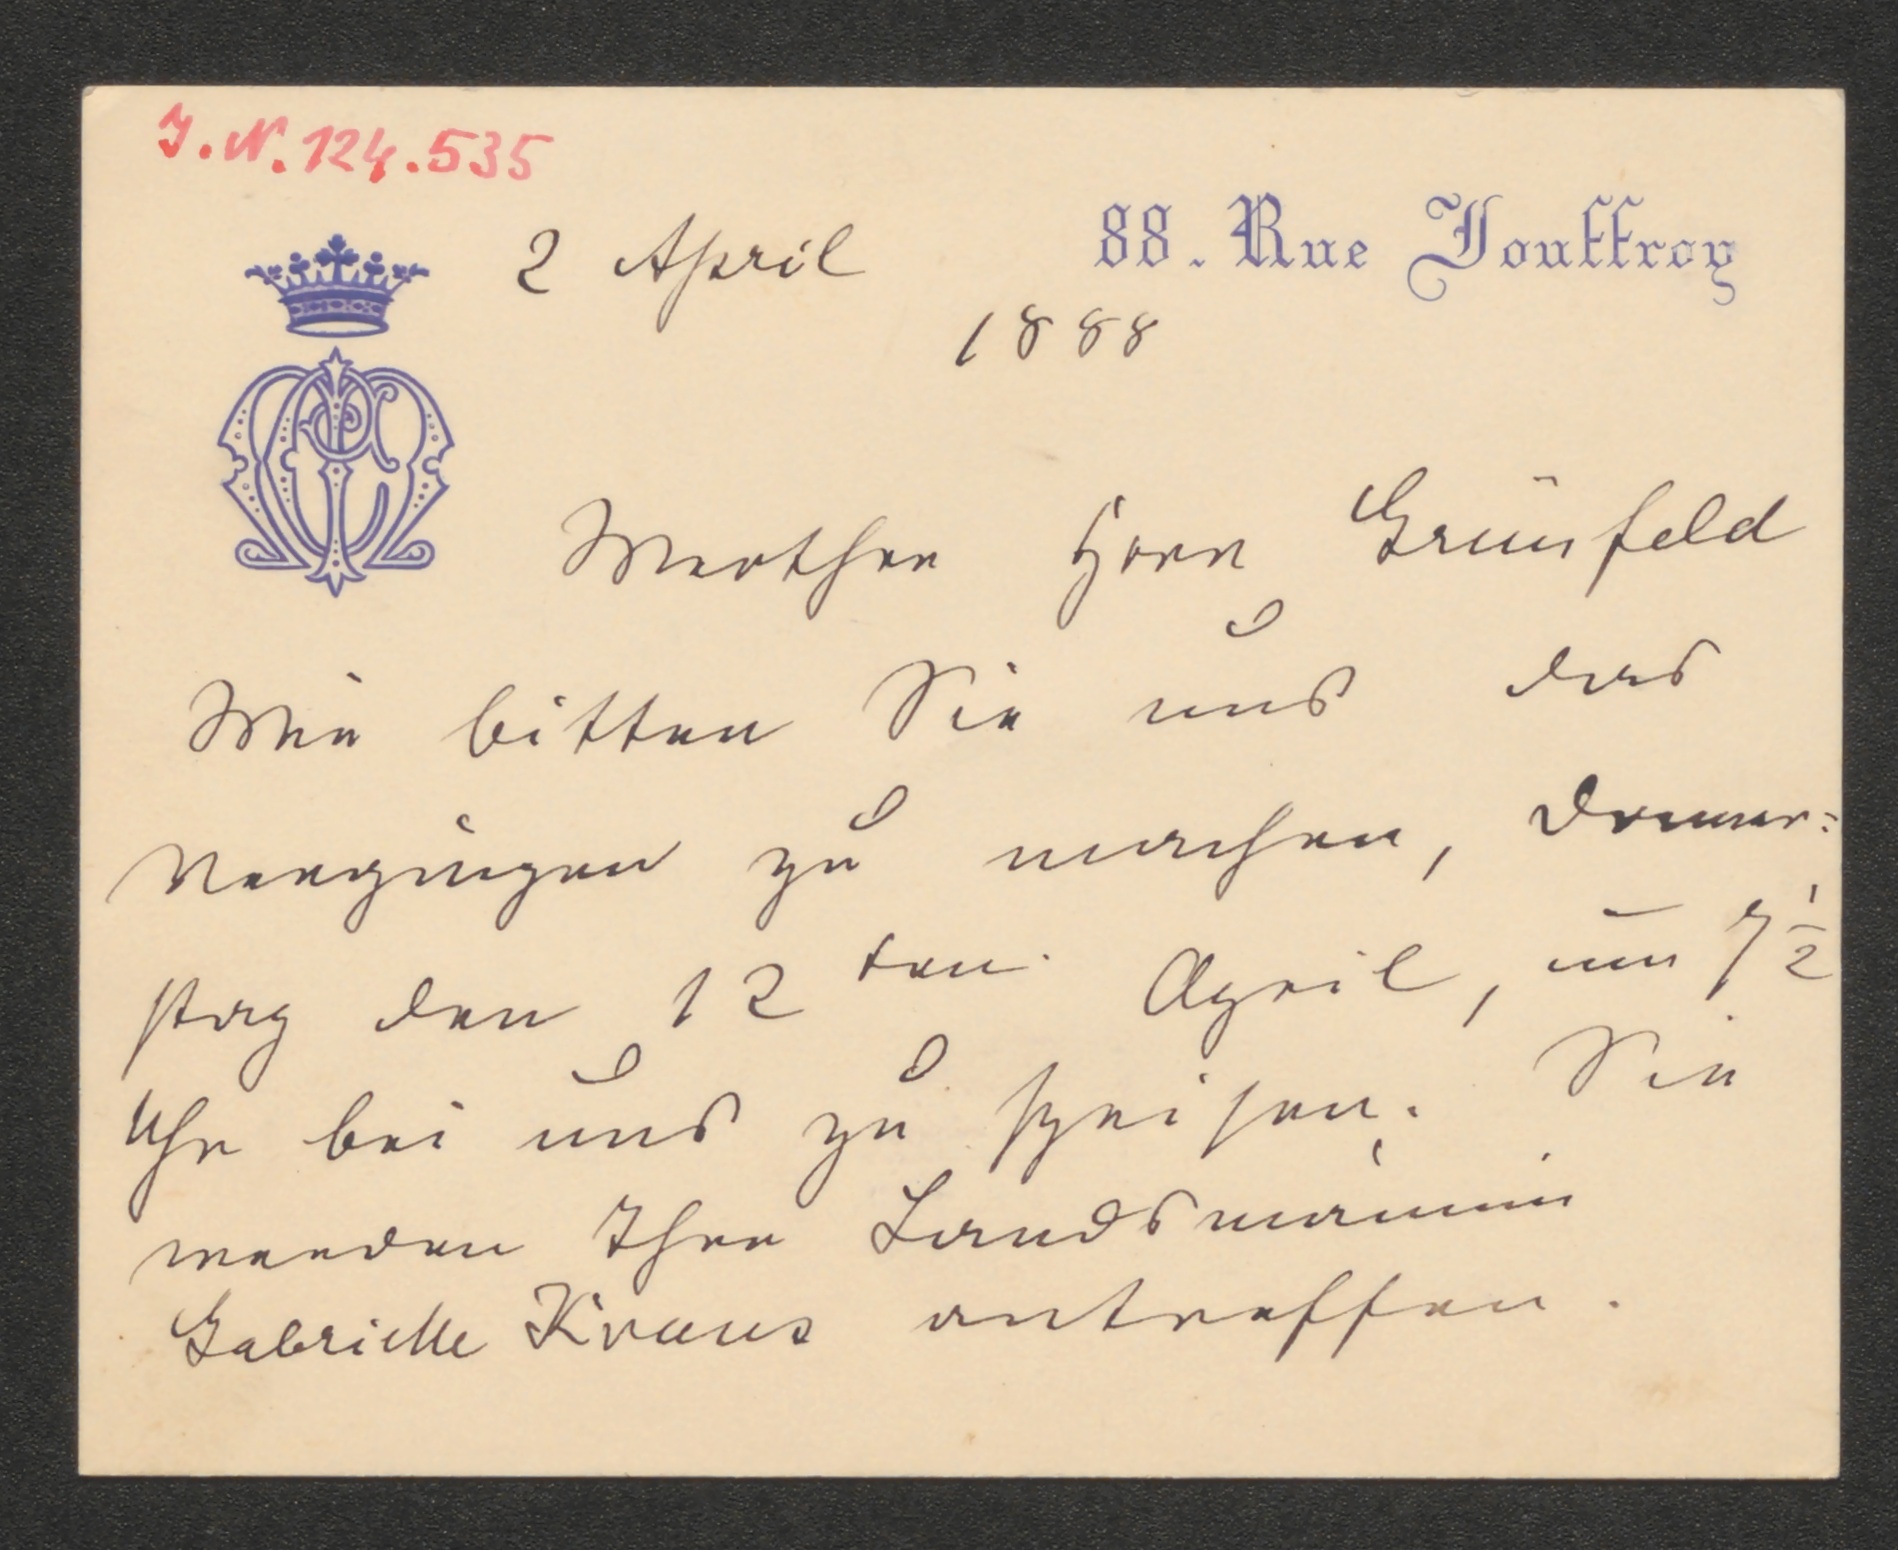 J.N. 124.535
2 April
88. Rue Jouffroy
1888
Werther Herr Grünfeld
Wir bitten Sie uns das
Vergnügen zu machen, Donner-
stag den 12ten. April, um 7 1/2
Uhr bei uns zu speisen. Sie
werden Ihre Landsmännin
Gabrielle Kraus antreffen.